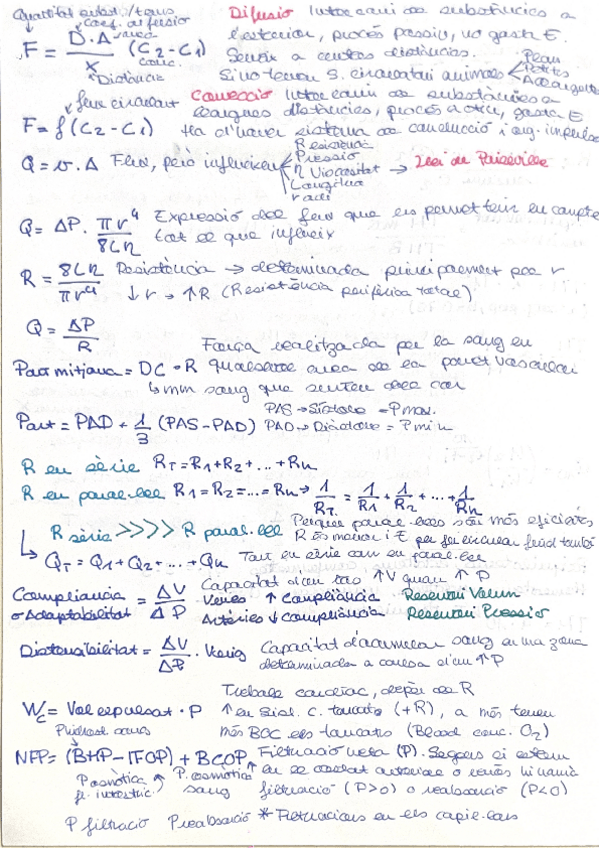 Quantitat subst./temps
coef. difusió
F = D·A/x (C2-C1)
àrea
conc.
Distància
Difusió Intercanvi de substàncies a
l'exterior, procés passiu, no gasta E.
Servir a curtes distàncies.
Sino tenen s. circulatori animals
Plans
Petits
Allargats
Convecció Intercanvi de substàncies a
llargues distàncies, procés actiu, gasta E
Ha d'haver sistema de conducció i òrg. impulsor
flux circulant
F = f (C2-C1)
Q = v·A Flux, però influeixen
Resistència
Pressió
η Viscositat → Llei de Poiseuille
Longitud
radi
Q = ΔP · πr⁴/8Lη Expressió del flux que ens permet tenir en compte
tot el que influeix
R = 8Lη/πr⁴ Resistència → determinada principalment per r
↓r → ↑R (Resistència perifèrica total)
Q = ΔP/R
Força realitzada per la sang en
Part mitjana = DC·R qualsevol àrea de la paret vascular
↳ mm sang que surten del cor
Part = PAD + 1/3 (PAS-PAD)
PAS → Sístole = P max.
PAD → Diàstole = P min
R en sèrie RT = R1+R2+...+Rn
R en paral·lel R1=R2=...=Rn → 1/RT = 1/R1 + 1/R2 + ... + 1/Rn
R sèrie >>>> R paral·lel Perquè paral·leles són més eficients
R és menor i E per fer circular fluid també
↳ QT = Q1+Q2+...+Qn Tant en sèrie com en paral·lel
Compliància = ΔV/ΔP
o Adaptabilitat
Capacitat d'incrementar ↑V quan ↑P
Venes ↑ compliància Reservori Volum
Artèries ↓ compliància Reservori Pressió
Distensibilitat = ΔV/ΔP · Vinicial Capacitat d'acumular sang en una zona
determinada a causa d'un ↑P
Treball cardíac, depèn de R
Wc = Vol expulsat · P ↑ en Sist. C. tancats (+R), a més tenen
més BOC els tancats (Blood conc. O2)
P hidrost. sang
NFP = (BHP-IFOP) + BCOP Filtració neta (P). Segons si estem
P osmòtica fl. intersticial
P. osmòtica sang
en el costat arteriole o venós hi haurà
filtració (P>0) o reabsorció (P<0)
P filtració P reabsorció * Filtracions en els capil·lars